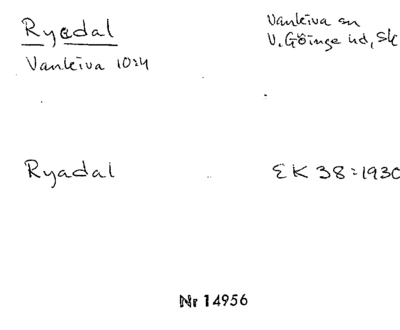 Ryadal
Vankiva sn
V. Göinge hd, Sk
Vankiva 10:4
Ryadal
EK 38:1930
Nr 14956